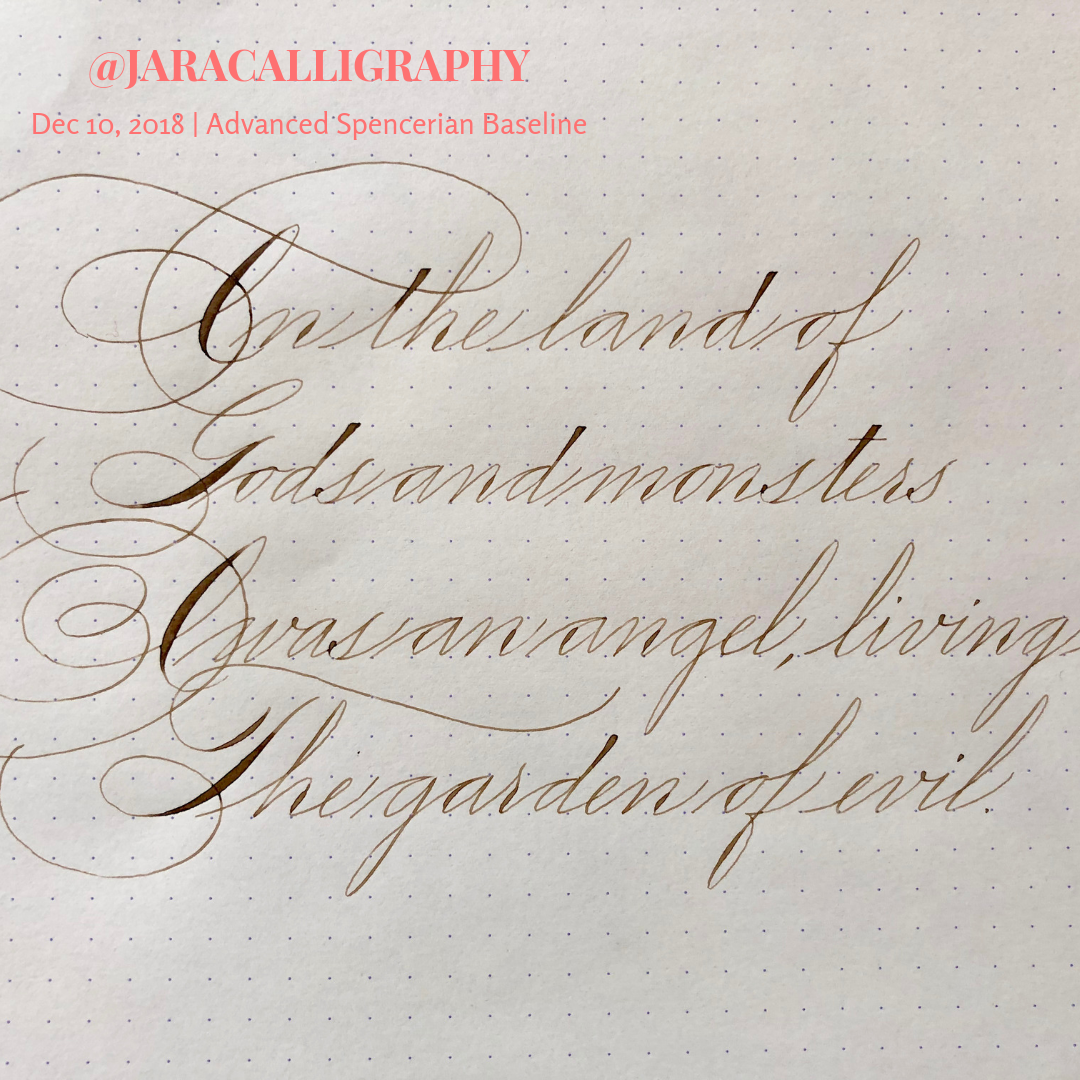 @JARACALLIGRAPHY
Dec 10, 2018 | Advanced Spencerian Baseline
In the land of
Gods and monsters
I was an angel, living
The garden of evil.